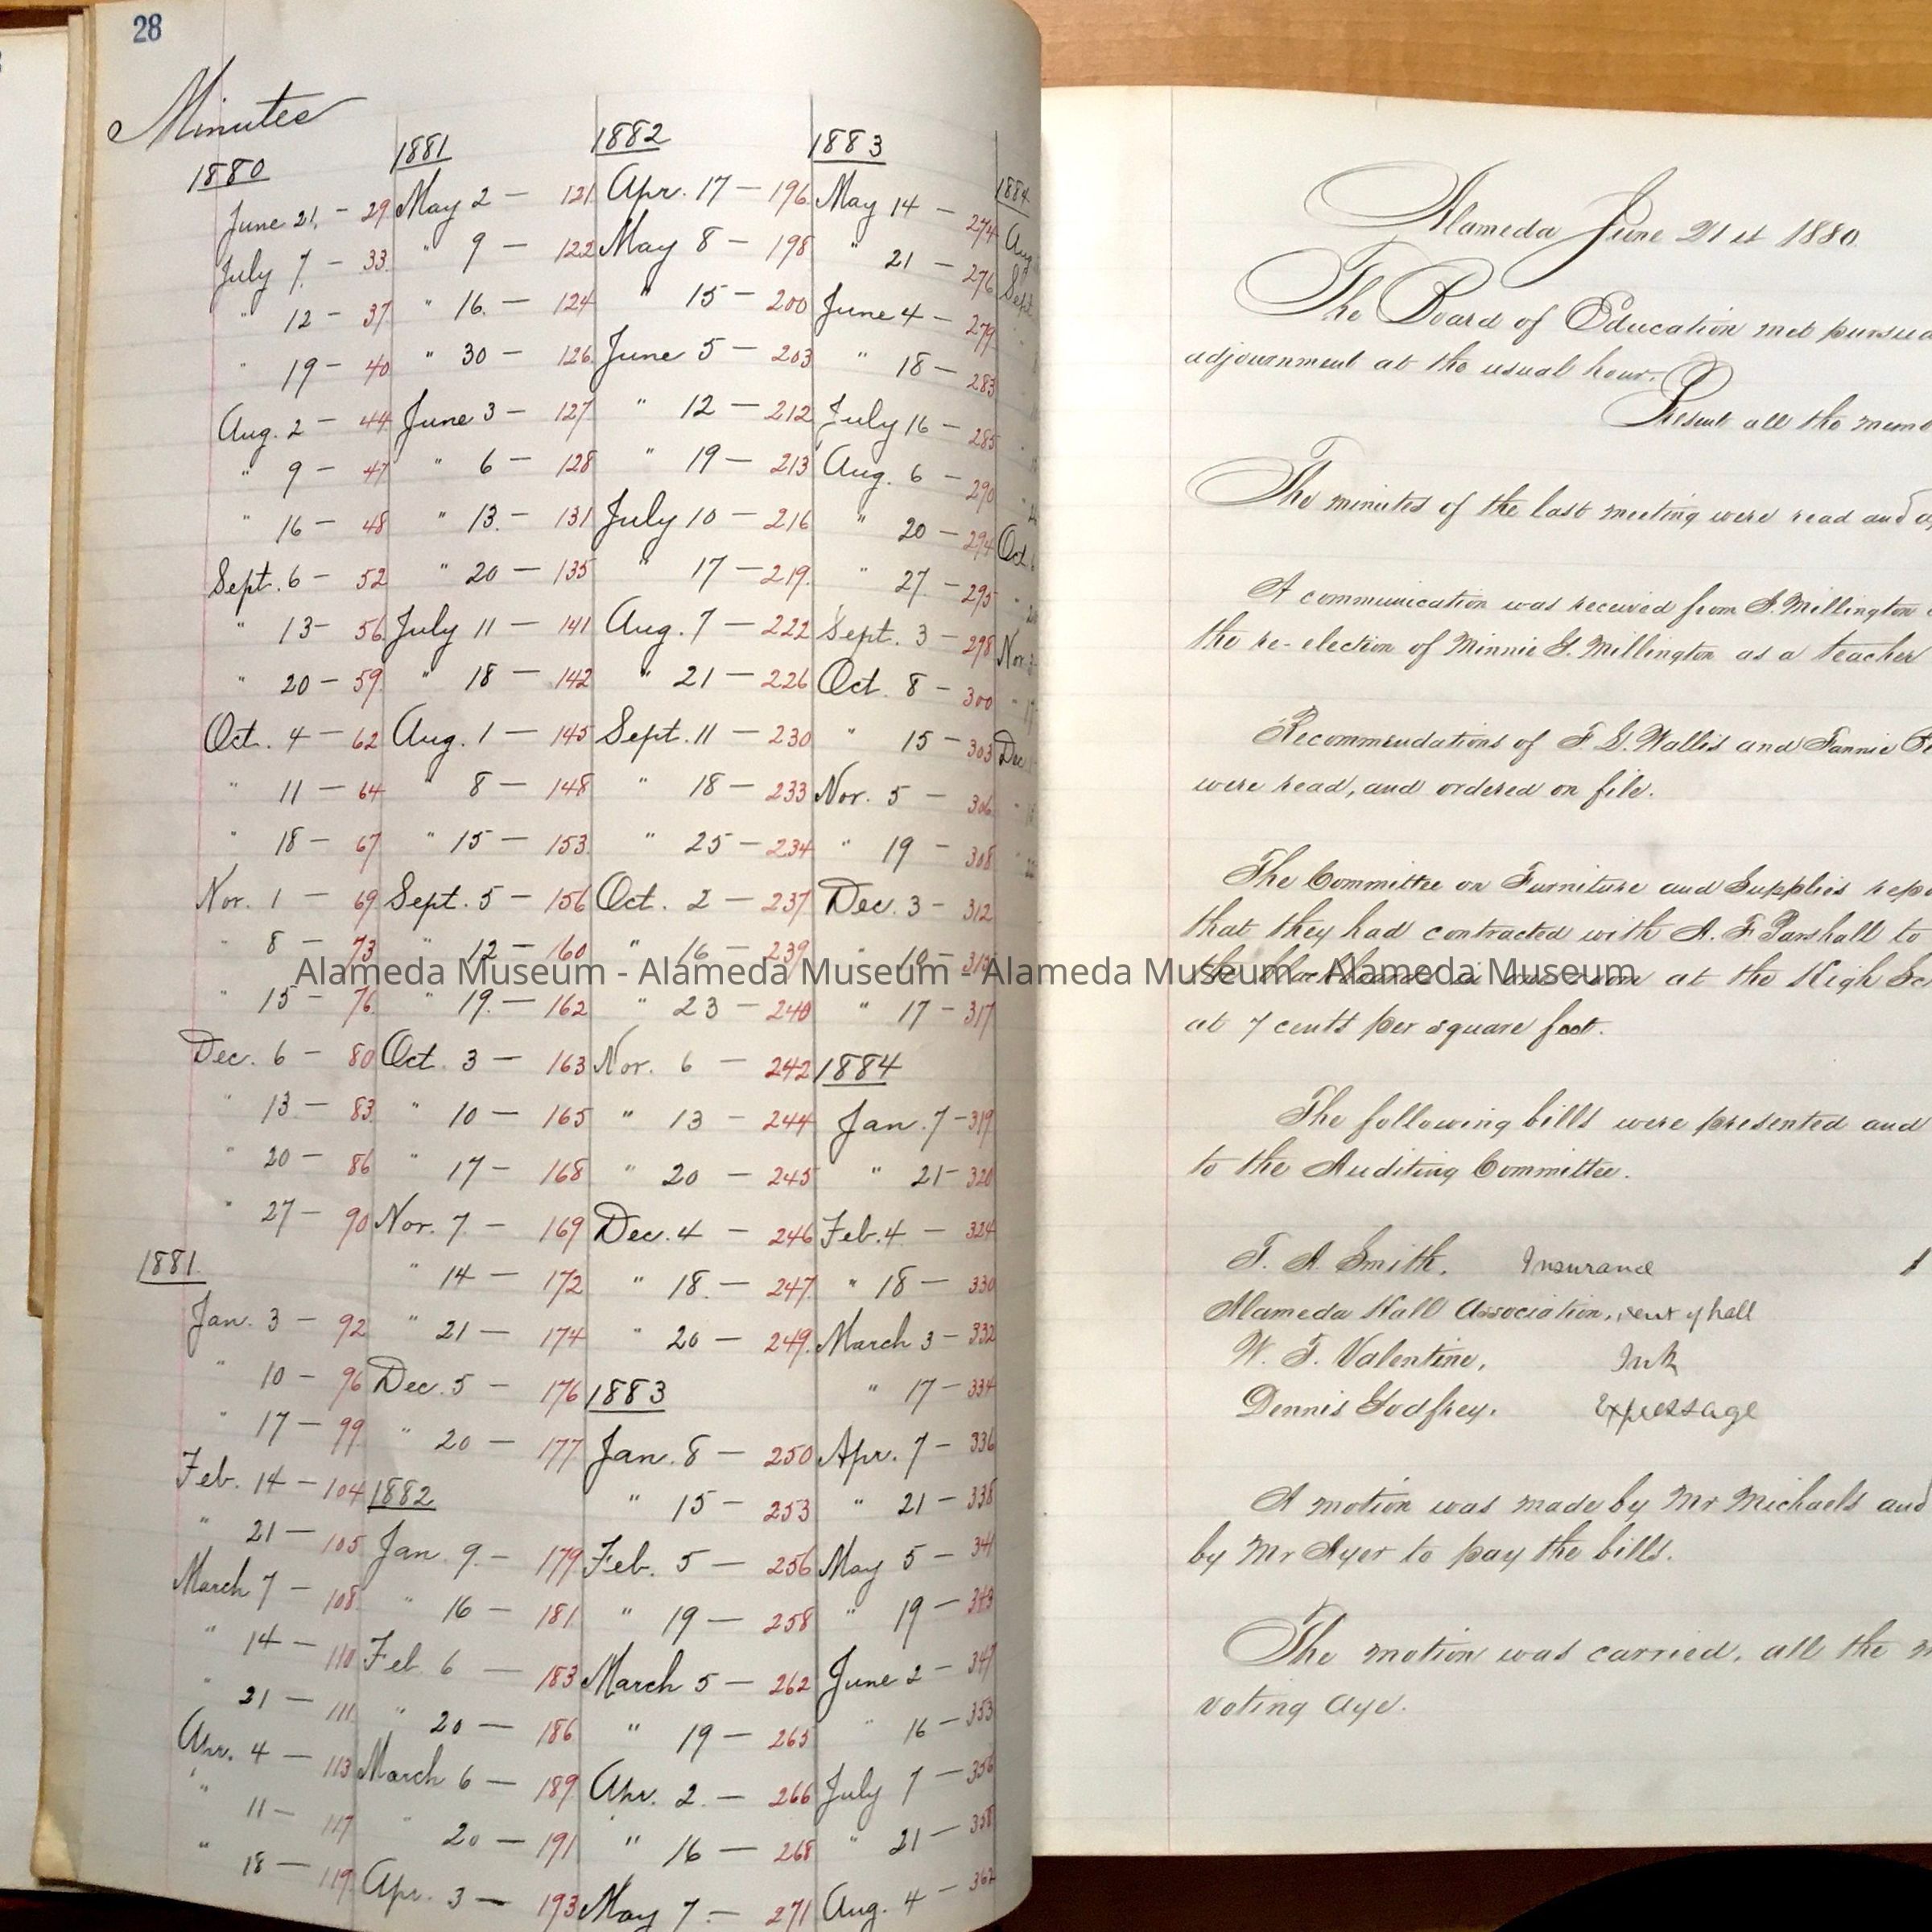 28
Minutes
1880
June 21, - 29
July 7. - 33.
" 12 - 37
" 19 - 40
Aug. 2 - 44
" 9 - 47
" 16 - 48
Sept. 6 - 52
" 13 - 56
" 20 - 59.
Oct. 4 - 62
" 11 - 64
" 18 - 67
Nov. 1 - 69
" 8 - 73
" 15 - 76
Dec. 6 - 80
" 13 - 83
" 20 - 86
" 27 - 90
1881.
Jan. 3 - 92
" 10 - 96
" 17 - 99
Feb. 14 - 104
" 21 - 105
March 7 - 108
" 14 - 110
" 21 - 111
Apr. 4 - 113
" 11 - 117
" 18 - 119
1881
May 2 - 121
" 9 - 122
" 16. - 124
" 30 - 126
June 3 - 127
" 6 - 128
" 13. - 131
" 20 - 135
July 11 - 141
" 18 - 142
Aug. 1 - 145
" 8 - 148
" 15 - 153
Sept. 5 - 156
" 12 - 160
" 19. - 162
Oct. 3 - 163
" 10 - 165
" 17 - 168
Nov. 7. - 169
" 14 - 172
" 21 - 174
Dec. 5 - 176
" 20 - 177
1882
Jan. 9. - 179
" 16 - 181
Feb. 6 - 183
" 20 - 186
March 6 - 189
" 20 - 191
Apr. 3 - 193
1882
Apr. 17 - 196
May 8 - 198
" 15 - 200
June 5 - 203
" 12 - 212
" 19 - 213
July 10 - 216
" 17 - 219.
Aug. 7 - 222
" 21 - 226
Sept. 11 - 230
" 18 - 233
" 25 - 234
Oct. 2 - 237
" 16 - 239
" 23 - 240
Nov. 6 - 242
" 13 - 244
" 20 - 245
Dec. 4 - 246
" 18. - 247
" 20 - 249.
1883
Jan. 8 - 250
" 15 - 253
Feb. 5 - 256
" 19 - 258
March 5 - 262
" 19 - 265
Apr. 2. - 266
" 16 - 268
May 7. - 271
1883
May 14 - 274
" 21 - 276
June 4 - 279
" 18 - 283
July 16 - 285
Aug. 6 - 290
" 20 - 294
" 27. - 295
Sept. 3 - 298
Oct. 8 - 300
" 15 - 303
Nov. 5 - 306
" 19 - 308
Dec. 3 - 312
" 10 -
" 17 - 317
1884
Jan. 7 - 319
" 21 - 320
Feb. 4 - 324
" 18 - 330
March 3 - 332
" 17 - 334
Apr. 7 - 336
" 21 - 338
May 5 - 341
" 19 - 343
June 2 - 347
" 16 - 353
July 7 - 356
" 21 - 358
Aug. 4 - 362
1884
Aug
Sept
Oct.
Nov.
Dec
Alameda June 21st 1880.
The Board of Education met
adjournment at the usual hour.
Present all the
The minutes of the last meeting were read and
A communication was received from S. Millington
the re-election of Minnie G. Millington as a teacher
Recommendations of F. G. Wallis and Fannie
were read, and ordered on file.
The Committee on Furniture and Supplies
that they had contracted with A. F. Parshall to
the blackboards in one room at the High
at 7 cents per square foot.
The following bills were presented and
to the Auditing Committee.
T. A. Smith. Insurance
Alameda Hall Association, rent of hall
W. F. Valentine, Ink
Dennis Godfrey. Expressage
A motion was made by Mr Michaels and
by Mr Ayer to pay the bills.
The motion was carried, all the
voting aye.
Alameda Museum - Alameda Museum - Alameda Museum - Alameda Museum